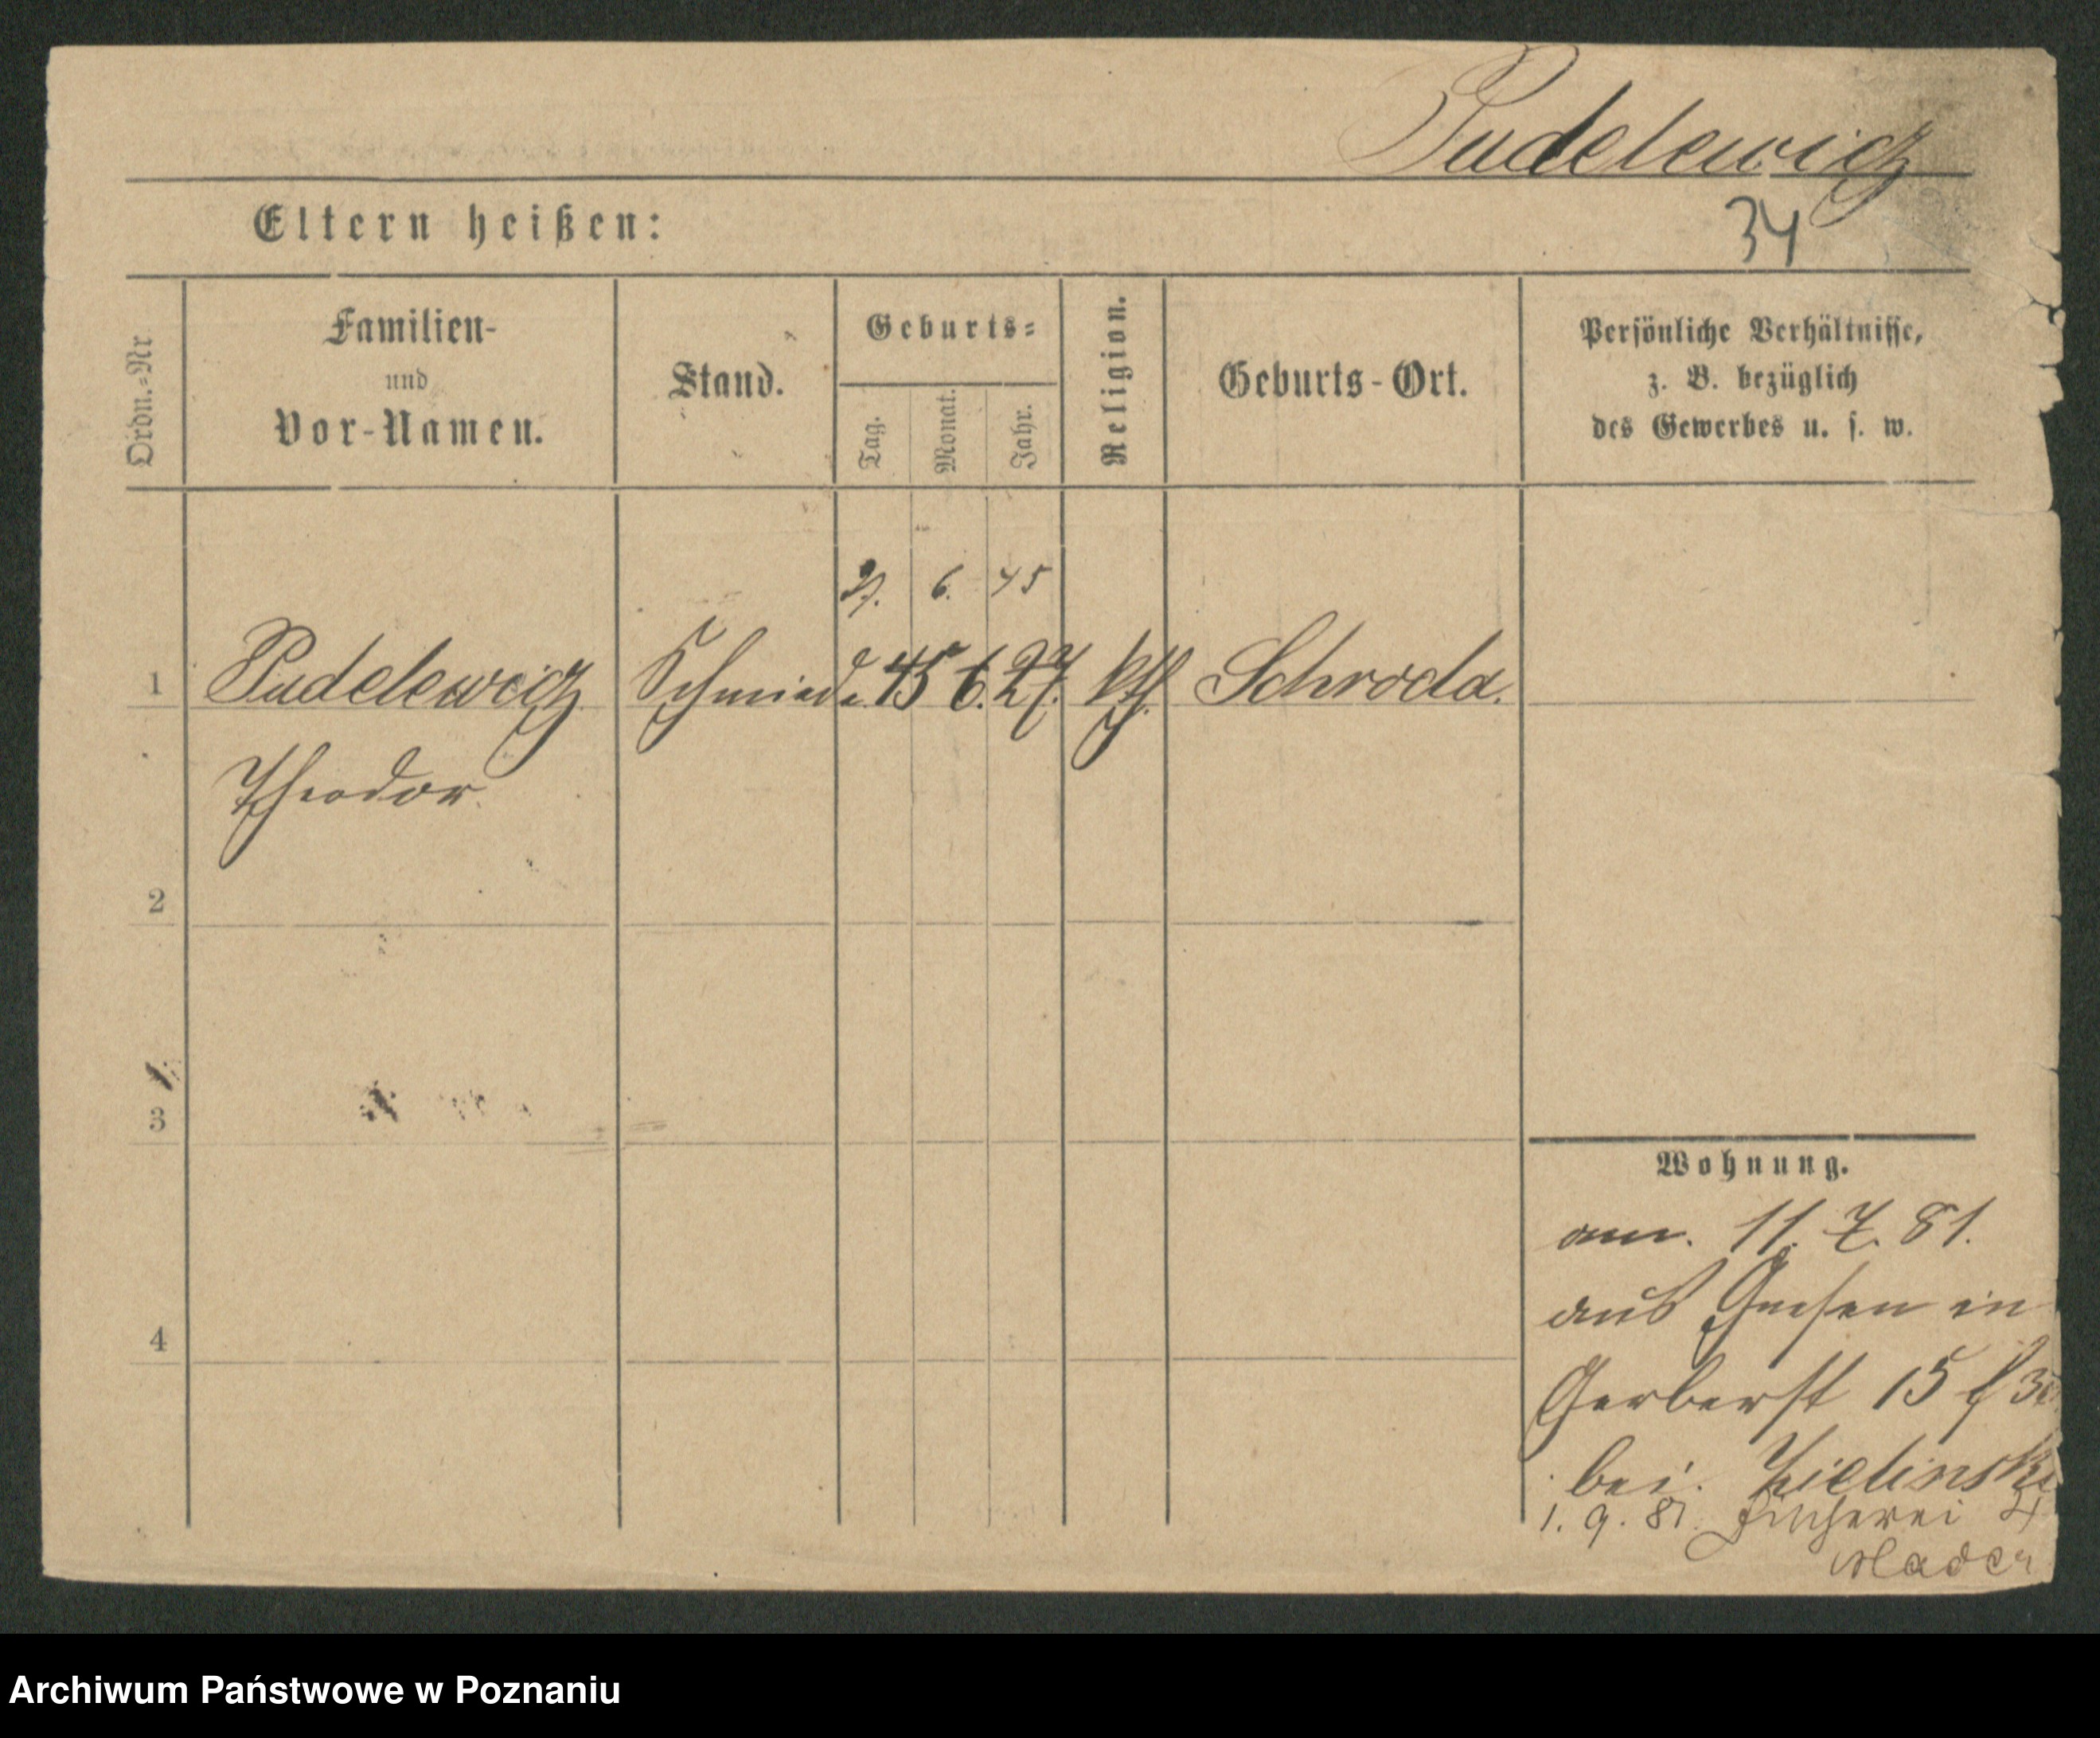 Pudelewicz
34
Eltern heißen:
Ordn.-Nr
Familien-
und
Vor-Namen.
Stand.
Geburts-
Tag.
Monat.
Jahr.
Religion.
Geburts-Ort.
Persönliche Verhältnisse,
z. B. bezüglich
des Gewerbes u. s. w.
27. 6. 45
1 Pudelewicz Schmied 45 6. 27. kth Schroda.
Theodor
2
3
4
Wohnung.
am. 11. 7. 81.
aus Gnesen in
Gerberst 15
bei. Zielinski
1. 9. 81. Fischerei 4
Mader
Archiwum Państwowe w Poznaniu